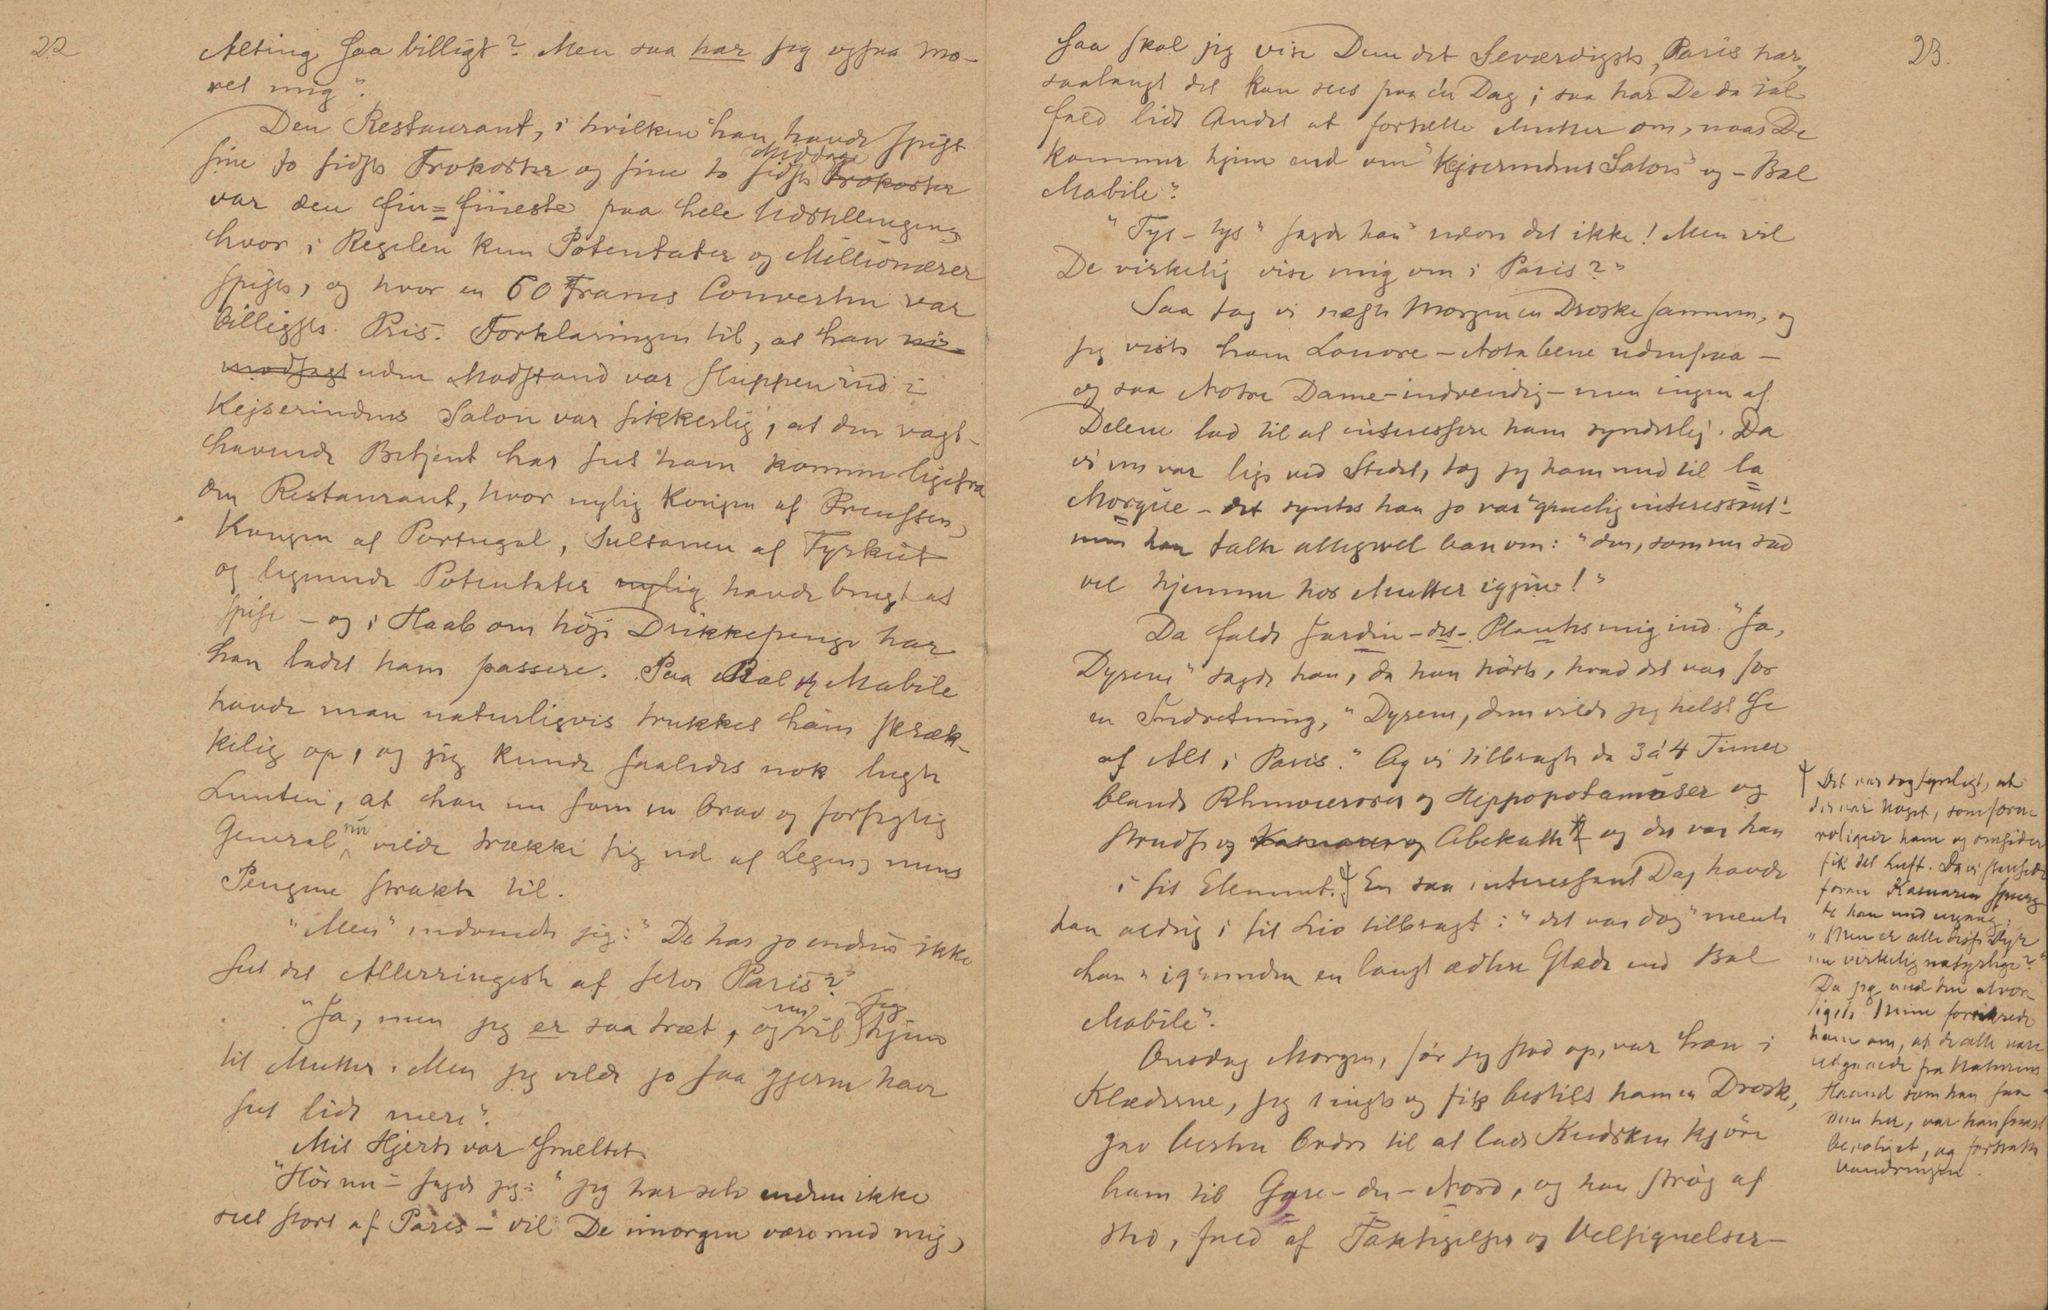 22
Alting saa billigt? Men saa har jeg ogsaa mo-
ret mig".
Den Restaurant, i hvilken han havde spist
sine to sidste Frokoster og sine to sidste Middage Frokoster
var den fin=fineste paa hele Udstillingen,
hvor i Regelen kun Potentater og Millionærer
spiste, og hvor en 60 Francs Couverten var
billigste Pris. Forklaringen til, at han
uden Modstand var sluppen ind i
Kejserindens Salon var sikkerlig, at den vagt-
havende Betjent har set ham komme lige fra
den Restaurant, hvor nylig Kongen af Preussen,
Kongen af Portugal, Sultanen af Tyrkiet
og lignende Potentater nylig havde brugt at
spise - og i Haab om høje Drikkepenge har
han ladet ham passere. Paa Bal Mabile
havde man naturligvis trukket ham skræk-
kelig op, og jeg kunde saaledes nok lugte
Lunten, at han nu som en brav og forsigtig
General nu vilde trække sig ud af Legen, mens
Pengene strakte til.
"Men" indvendte jeg: "De har jo endnu ikke
set det Allerringeste af selve Paris?"
"Ja, men jeg er saa træt, og nu vil jeg hjem
til Mutter. Men jeg vilde jo saa gjerne have
set lidt mere".
Mit Hjerte var smeltet.
"Hør nu" sagde jeg: "jeg har selv endnu ikke
set stort af Paris - vil De imorgen være med mig,
23.
saa skal jeg vise Dem det Seværdigste, Paris har,
saalangt det kan sees paa én Dag; saa har De da ial
fald lidt Andet at fortælle Mutter om, naar De
kommer hjem end om "Kejserindens Salon" og - Bal
Mabile".
"Tys - tys" sagde han "nævn det ikke! Men vil
De virkelig vise mig om i Paris?"
Saa tog vi næste Morgen en Droske sammen, og
jeg viste ham Louvre - Nota bene udenpaa -
og saa Notre Dame - indvendig - men ingen af
Delene lod til at interessere ham synderlig. Da
vi nu var lige ved Stedet, tog jeg ham med til la
Morgue - det syntes han jo var "gruelig interessant"
men han talte alligevel kan om: "den, som nu sad
vel hjemme hos Mutter igjen!"
Da faldt Jardin - des - Plantes mig ind. "Ja,
Dyrene" sagde han, da han hørte, hvad det var for
en Indretning, "Dyrene, dem vilde jeg helst se
af Alt i Paris." Og vi tilbragte da 3 à 4 Timer
blandt Rhinoceroser og Hippopotamuser og
Strudse og Kasuarer og Abekatte og der var han
i sit Element. En saa interessant Dag havde
han aldrig i sit Liv tilbragt: "det var dog" mente
han "igrunden en langt ædlere Glæde end Bal
Mabile".
Onsdag Morgen, før jeg stod op, var han i
Klæderne, jeg ringte og fik bestilt ham en Droske,
gav bestemt Ordre til at lade Kudsken kjøre
ham til Gare - du - Nord, og han strøg af
sted, fuld af Taksigelser og Velsignelser -
Det var dog synligt, at
der var Noget, som foru-
roligede ham og omsider
fik det Luft. Da vi stod
foran Kasuaren spurg-
te han med engang:
"Men er alle disse Dyr
nu virkelig naturlige?"
Da jeg med den alvor-
ligste Mine forsikrede
ham om, at de alle vare
udgaaede fra Naturens
Haand som han saa
dem her, var han
beroliget, og fortsatte
Vandringen.